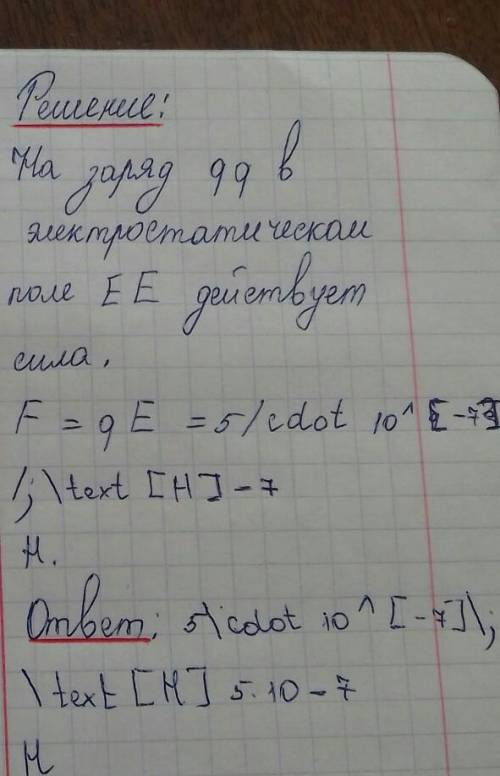 Решение:
На заряд qq в
электростатическом
поле EE действует
сила.
F = qE = 5/cdot 10^ [-7]
/;\text [H] - 7
H.
Ответ: 5\cdot 10^ [-7]\;
\text [H] 5.10 - 7
H